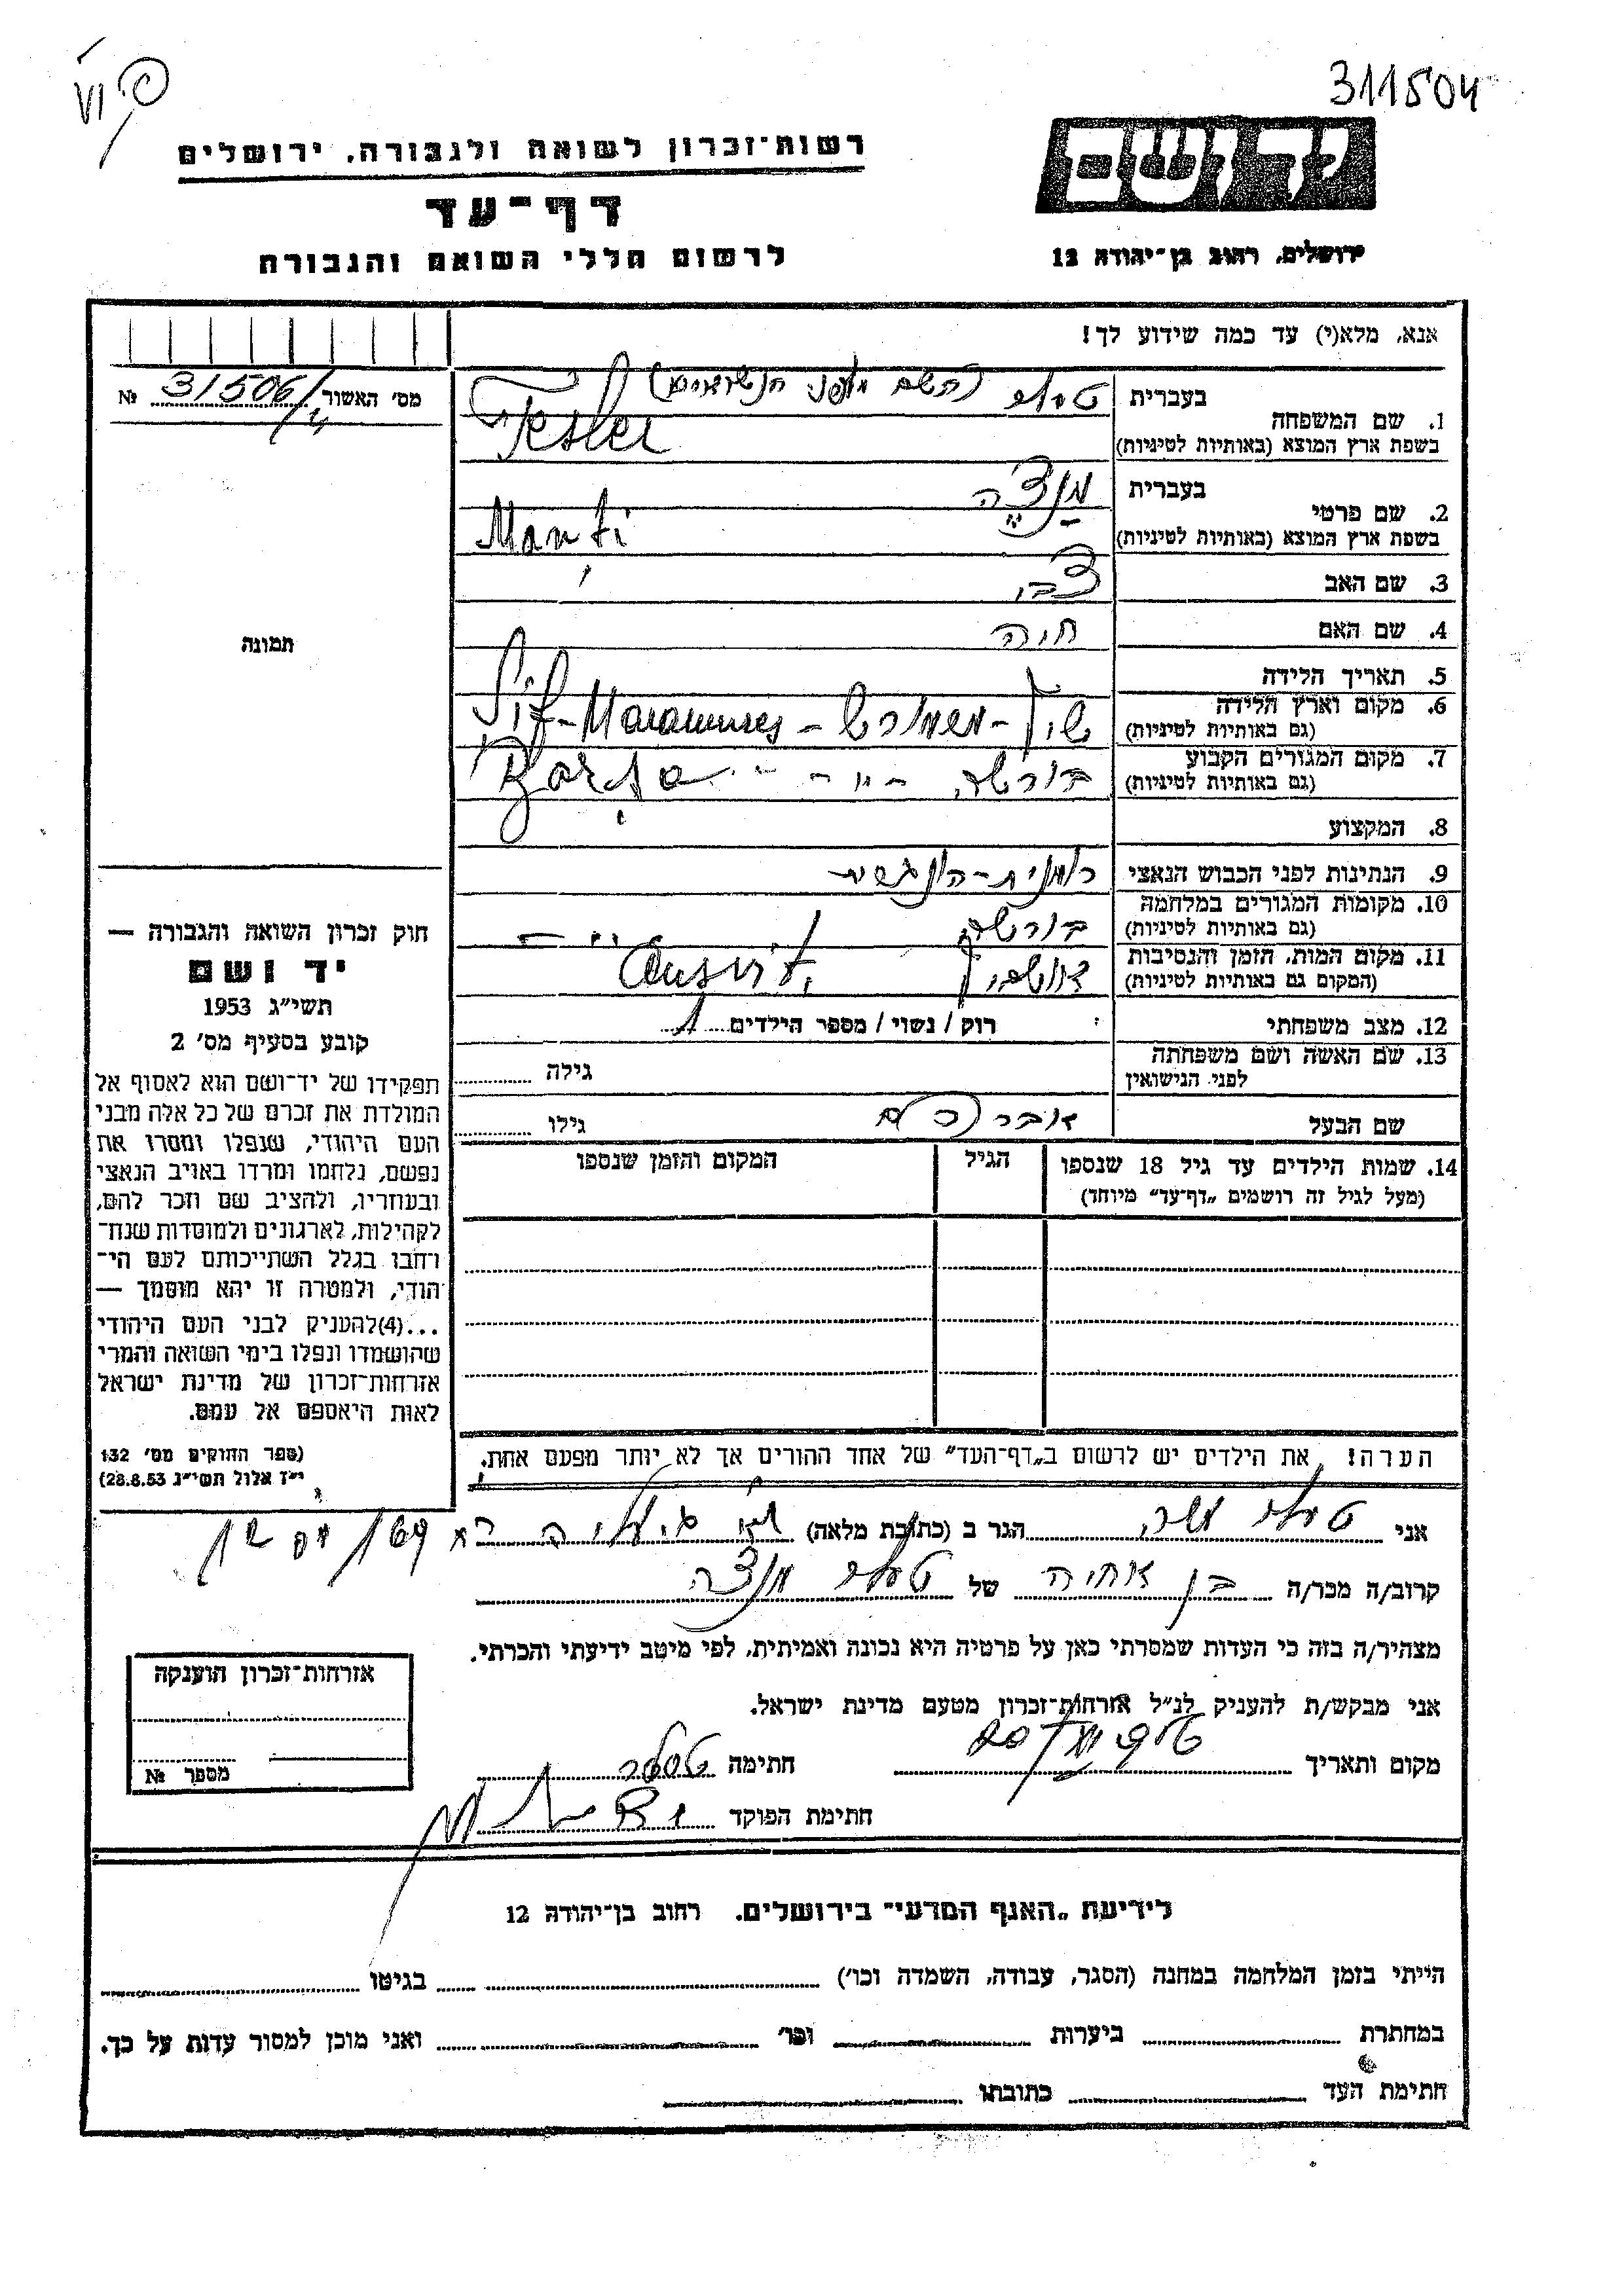 311504
VI
יד ושם
רשות־זכרון לשואה ולגבורה, ירושלים
דף־עד
לרשום חללי השואה והגבורה
ירושלים, רחוב בן־יהודה 12
אנא, מלא(י) עד כמה שידוע לך!
מס' האשור № 31506/
תמונה
1. שם המשפחה
בעברית (השם מלפני הנשואים)
בשפת ארץ המוצא (באותיות לטיניות) Tesler
2. שם פרטי
בעברית מנצה
בשפת ארץ המוצא (באותיות לטיניות)
3. שם האב צבי
4. שם האם חיה
5. תאריך הלידה
6. מקום וארץ הלידה
(גם באותיות לטיניות) Maramures
7. מקום המגורים הקבוע
(גם באותיות לטיניות) בורשה Borşa
8. המקצוע
9. הנתינות לפני הכבוש הנאצי
10. מקומות המגורים במלחמה
(גם באותיות לטיניות) בורשה
11. מקום המות, הזמן והנסיבות
(המקום גם באותיות לטיניות)
12. מצב משפחתי רוק / נשוי / מספר הילדים 1
13. שם האשה ושם משפחתה
לפני הנישואין גילה
שם הבעל אברהם גילו
14. שמות הילדים עד גיל 18 שנספו
(מעל לגיל זה רושמים „דף־עד" מיוחד)
הגיל
המקום והזמן שנספו
חוק זכרון השואה והגבורה —
יד ושם
תשי"ג 1953
קובע בסעיף מס' 2
תפקידו של יד־ושם הוא לאסוף אל
המולדת את זכרם של כל אלה מבני
העם היהודי, שנפלו ומסרו את
נפשם, נלחמו ומרדו באויב הנאצי
ובעוזריו, ולהציב שם וזכר להם,
לקהילות, לארגונים ולמוסדות שנח־
רבו בגלל השתייכותם לעם הי־
הודי, ולמטרה זו יהא מוסמך —
...(4)להעניק לבני העם היהודי
שהושמדו ונפלו בימי השואה והמרי
אזרחות־זכרון של מדינת ישראל
לאות היאספם אל עמם.
(ספר החוקים מס' 132
י"ז אלול תשי"ג 28.8.53)
הערה! את הילדים יש לרשום ב„דף־העד" של אחד ההורים אך לא יותר מפעם אחת.
אני הגר ב (כתובת מלאה)
קרוב/ה מכר/ה בן אחיה של מנצה
מצהיר/ה בזה כי העדות שמסרתי כאן על פרטיה היא נכונה ואמיתית, לפי מיטב ידיעתי והכרתי.
אני מבקש/ת להעניק לנ"ל אזרחות־זכרון מטעם מדינת ישראל.
מקום ותאריך חתימה טסלר
חתימת הפוקד
אזרחות־זכרון הוענקה
מספר №
לידיעת „האגף המדעי" בירושלים. רחוב בן־יהודה 12
הייתי בזמן המלחמה במחנה (הסגר, עבודה, השמדה וכו') בגיטו
במחתרת ביערות וכו' ואני מוכן למסור עדות על כך.
חתימת העד כתובתו